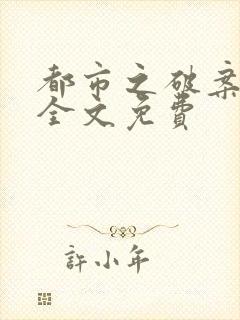 都市之破案
全文免費
許小年